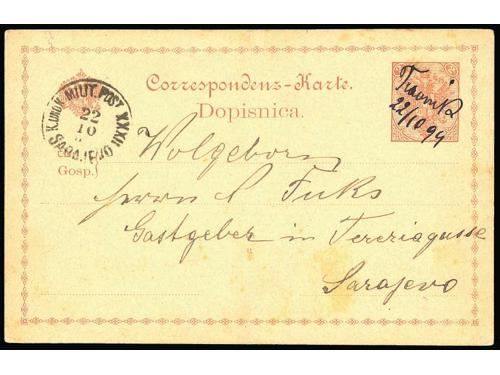 Correspondenz-Karte.
Dopisnica.
Travnik
22/10 99
K.UND K. MILIT. POST XXXII
22
10
SARAJEVO
Gosp.
Wolgeborn
Herrn S Fuks
Gastgeber in Tereziagasse
Sarajevo